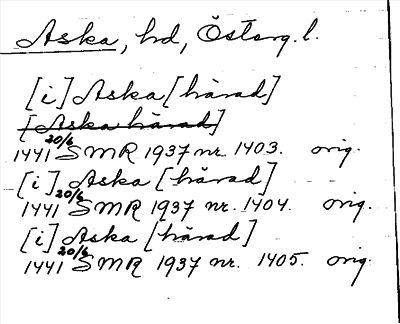 Aska, hd, Österg. l.
[i] Aska [härad]
[Aska härad]
1441 20/6 SMR 1937 nr. 1403. orig.
[i] Aska [härad]
1441 20/6 SMR 1937 nr. 1404. orig.
[i] Aska [härad]
1441 20/6 SMR 1937 nr. 1405. orig.